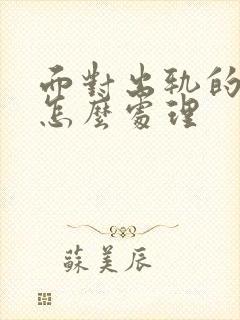 而對出軌的
怎麼處理
蘇美辰